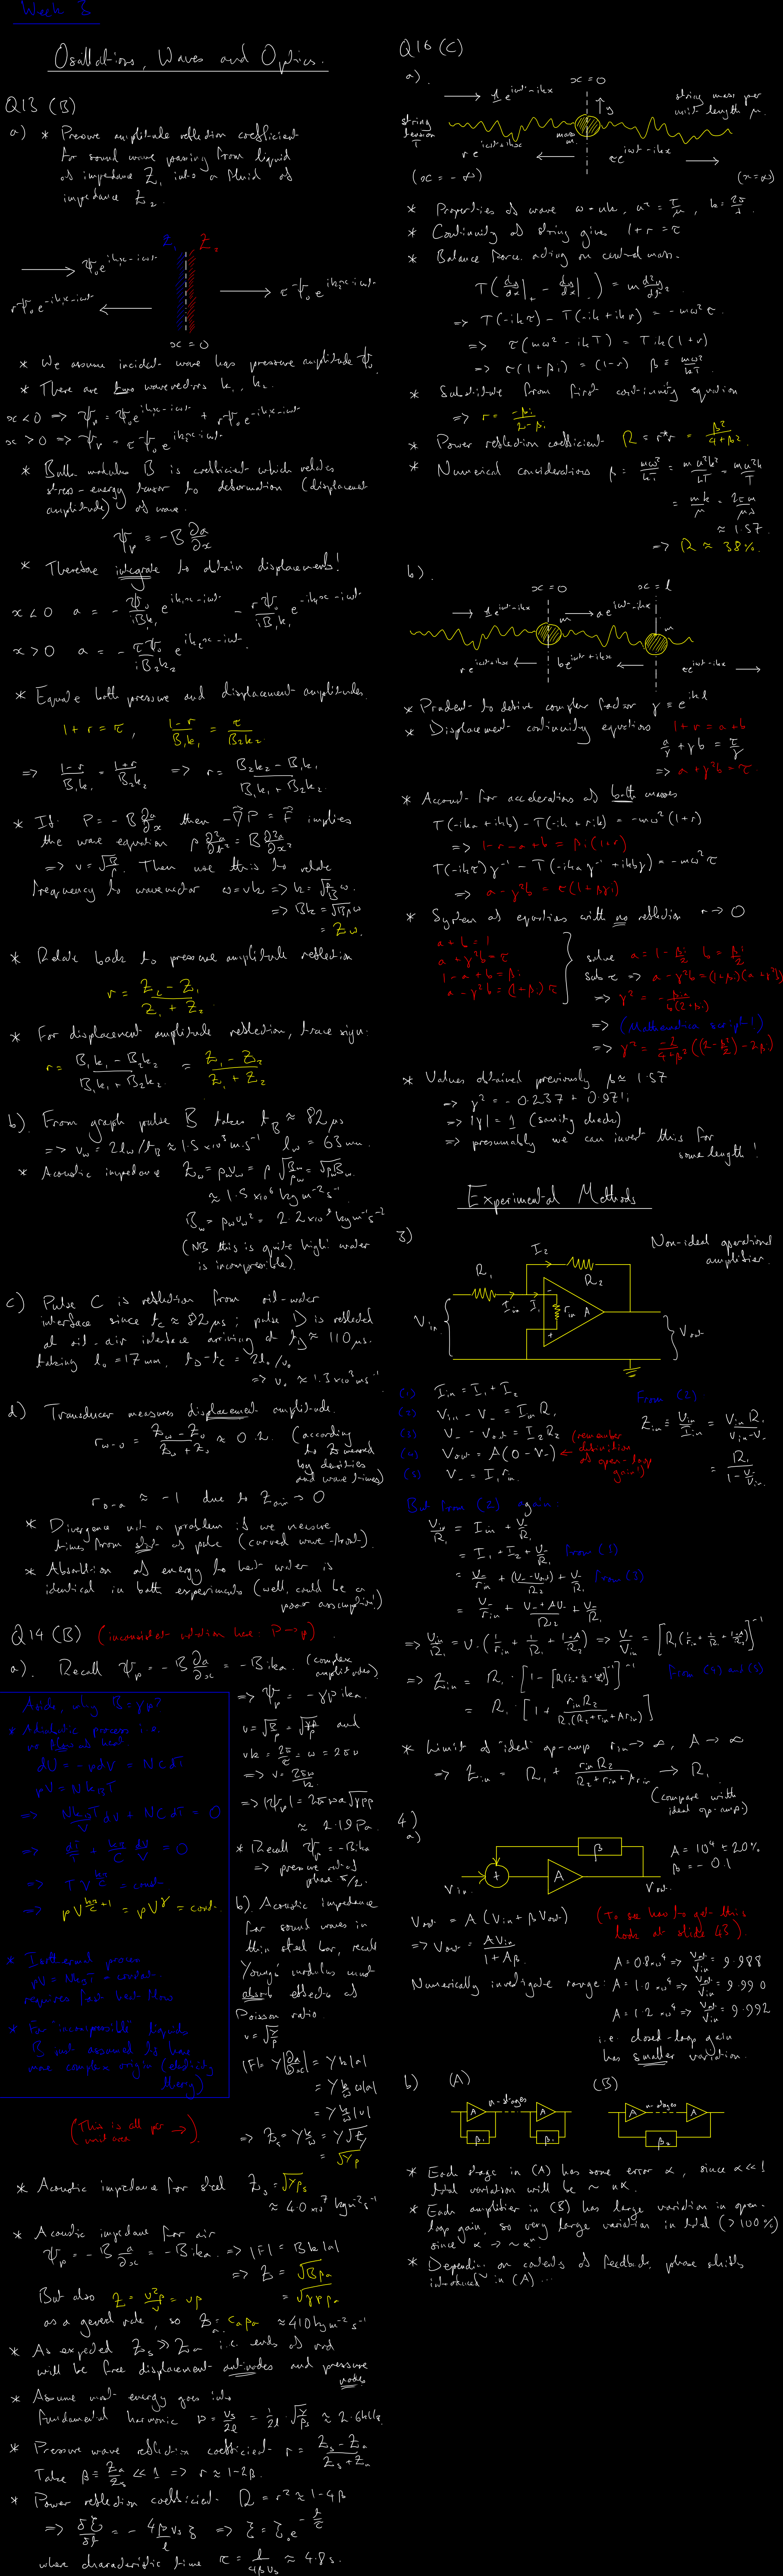 Week 3
Osillations, Waves and Optics.
Q13 (B)
a) * Pressure amplitude reflection coefficient
for sound wave passing from liquid
of impedance Z₁ into a fluid of
impedance Z₂.
Z₁ Z₂
x = 0
* We assume incident wave has pressure amplitude ψ₀.
* There are two wavevectors k₁, k₂.
* Bulk modulus B is coefficient which relates
stress-energy tensor to deformation (displacement
amplitude) of wave.
ψₚ = -B ∂a/∂x
* Therefore integrate to obtain displacements!
* Equate both pressure and displacement amplitudes.
1 + r = τ, (1-r)/B₁k₁ = τ/B₂k₂
=> (1-r)/B₁k₁ = (1+r)/B₂k₂ => r = (B₂k₂ - B₁k₁)/(B₁k₁ + B₂k₂)
* If P = -B ∂a/∂x then -∇P = F implies
the wave equation ρ ∂²a/∂t² = B ∂²a/∂x²
=> v = √(B/ρ). Then use this to relate
frequency to wavevector ω = vk => k = √(ρ/B) ω.
=> Bk = √(Bρ) ω
= Zω.
* Relate back to pressure amplitude reflection
r = (Z₂ - Z₁)/(Z₁ + Z₂)
* For displacement amplitude reflection, trace sign:
r = (B₁k₁ - B₂k₂)/(B₁k₁ + B₂k₂) = (Z₁ - Z₂)/(Z₁ + Z₂)
b). From graph pulse B takes t_B ≈ 82 μs
=> v_w = 2l_w/t_B ≈ 1.5 x10³ ms⁻¹ l_w = 63 mm.
* Acoustic impedance Z_w = ρ_w v_w = ρ √(B_w/ρ_w) = √(ρ_w B_w)
≈ 1.5 x10⁶ kg m⁻² s⁻¹
B_w = ρ_w v_w² = 2.2 x10⁹ kg m⁻¹ s⁻²
(NB this is quite high: water
is incompressible).
c) Pulse C is reflection from oil-water
interface since t_C ≈ 82 μs; pulse D is reflected
at oil-air interface arriving at t_D ≈ 110 μs.
taking l₀ = 17 mm, t_D - t_C = 2l₀/v₀
=> v₀ ≈ 1.3 x10³ ms⁻¹
d) Transducer measures displacement amplitude.
r_w-o = (Z_w - Z_o)/(Z_w + Z_o) ≈ 0.2. (according
to Z inferred
by densities
and wave times)
r_o-a ≈ -1 due to Z_air → 0
* Divergence not a problem if we measure
times from start of pulse (curved wave-front).
* Absorbtion of energy to heat water is
identical in both experiments (well, could be a
poor assumption!)
Q14 (B) (inconsistent notation here: P → p)
a). Recall ψₚ = -B ∂a/∂x = -Bika. (complex
amplitudes)
Aside, why B = γp?
* Adiabatic process i.e.
no heat
dU = -pdV = NCdT
pV = Nk_BT
=> Nk_BT/V dV + NCdT = 0
=> dT/T + k_B/C dV/V = 0
=> T V^(k_B/C) = const
=> pV^(k_B/C + 1) = pV^γ = const.
* Isothermal process
pV = Nk_BT = constant
requires fast heat flow
* For "incompressible" liquids
B not assumed to have
more complex origin
theory)
=> ψₚ = -γpika.
v = √(B/ρ) = √(γp/ρ) and
vk = 2πv/λ = ω = 2πν
=> |ψₚ| = 2πνa√(γpρ)
≈ 2.19 Pa.
* Recall ψₚ = -Bika
=> pressure out of
phase π/2.
b). Acoustic impedance
for sound waves in
thin steel bar, recall
Young's modulus must
absorb effects of
Poisson ratio.
v = √(Y/ρ)
|F| = Y|∂a/∂x| = Yk|a|
= Y k/ω ω|a|
= Y k/ω |v|
=> Z_s = Y k/ω = Y√(ρ/Y)
= √(Yρ)
(This is all per →)
unit area
* Acoustic impedance for steel Z_s = √(Yρ_s)
≈ 4.0 x10⁷ kg m⁻² s⁻¹
* Acoustic impedance for air
ψₚ = -B ∂a/∂x = -Bika. => |F| = Bk|a|
=> Z = √(Bρₐ)
= √(γpρₐ)
But also Z = v²ρ/v = vρ
as a general rule, so Z = cₐρₐ ≈ 410 kg m⁻² s⁻¹
* As expected Z_s ≫ Zₐ i.e. ends of rod
will be free displacement antinodes and pressure
nodes.
* Assume most energy goes into
fundamental harmonic ν = v_s/2l = 1/2l · √(Y/ρ_s) ≈ 2.6 kHz.
* Pressure wave reflection coefficient r = (Z_s - Zₐ)/(Z_s + Zₐ)
Take β ≡ Zₐ/Z_s ≪ 1 => r ≈ 1-2β.
* Power reflection coefficient R = r² ≈ 1-4β
=> δξ/δt = -4βv_s/l ξ => ξ = ξ₀e^(-t/τ)
where characteristic time τ = l/4βv_s ≈ 4.8 s.
Q16 (C)
a).
x = 0
string
tension
T
mass
m
y
string mass per
unit length μ.
(x = -∞) (x = ∞)
* Properties of wave ω = uk, u² = T/μ, k = 2π/λ
* Continuity of string gives 1+r = τ
* Balance force acting on central mass.
T(dy/dx|₊ - dy/dx|₋) = m d²y/dt²
=> T(-ikτ) - T(-ik + ikr) = -mω²τ.
=> τ(mω² - ikT) = Tik(1+r)
=> τ(1+βi) = (1-r) β = mω²/kT
* Substitute from first continuity equation
=> r = -βi/(2-βi)
* Power reflection coefficient R = r*r = β²/(4+β²)
* Numerical considerations β = mω²/kT = mu²k²/kT = mu²k/T
= mk/μ = 2πm/μλ
≈ 1.57.
=> R ≈ 38%.
b).
x = 0 x = l
m m
* Prudent to define complex factor γ = e^(ikl)
* Displacement continuity equations 1+r = a+b
a/γ + γb = τ/γ
=> a + γ²b = τ
* Account for acceleration of both masses
T(-ika + ikb) - T(-ik + rik) = -mω²(1+r)
=> 1-r-a+b = βi(1+r)
T(-ikτ)γ⁻¹ - T(-ikaγ⁻¹ + ikbγ) = -mω²τ
=> a - γ²b = τ(1+βi)
* System of equations with no reflection r → 0
a+b = 1
a+γ²b = τ
1-a+b = βi
a-γ²b = (1+βi)τ
solve a = 1 - βi/2 b = βi/2
sub τ => a - γ²b = (1+βi)(a+γ²b)
=> γ² = -βia/b(2+βi)
=> (Mathematica script!)
* Values obtained previously β ≈ 1.57
=> γ² = -0.237 + 0.971i
=> |γ| = 1 (sanity check)
=> presumably we can invert this for
some length!
Experimental Methods
3)
I₂
R₁ R₂
I_in I₁ r_in A
V_in V_out
Non-ideal operational
amplifier.
(1) I_in = I₁ + I₂
(2) V_in - V₋ = I_in R₁
(3) V₋ - V_out = I₂R₂
(4) V_out = A(0 - V₋)
(5) V₋ = I₁r_in
(remember
definition
of open-loop
gain!)
From (2)
Z_in ≡ V_in/I_in = V_in R₁/(V_in - V₋)
= R₁/(1 - V₋/V_in)
But from (2) again
V_in/R₁ = I_in + V₋/R₁
= I₁ + I₂ + V₋/R₁ from (1)
= V₋/r_in + (V₋ - V_out)/R₂ + V₋/R₁ from (3)
= V₋/r_in + (V₋ + AV₋)/R₂ + V₋/R₁
=> V_in/R₁ = V₋(1/r_in + 1/R₁ + (1+A)/R₂) => V₋/V_in = [R₁(1/r_in + 1/R₁ + (1+A)/R₂)]⁻¹
from (4) and (5)
=> Z_in = R₁ · [1 - [R₁(1/r_in + 1/R₁ + (1+A)/R₂)]⁻¹]⁻¹
= R₁ · [1 + r_inR₂/(R₁(R₂ + r_in + Ar_in))]
* Limit of "ideal" op-amp r_in → ∞, A → ∞
=> Z_in = R₁ + r_inR₂/(R₂ + r_in + Ar_in) → R₁
(compare with
ideal op-amp.)
4)
a)
β
V_in + A V_out
A = 10⁴ ± 20%
β = -0.1
V_out = A(V_in + βV_out)
=> V_out = AV_in/(1+Aβ)
(To see how to get this
look at slide 43)
Numerically investigate range:
A = 0.8x10⁴ => V_out/V_in = 9.988
A = 1.0x10⁴ => V_out/V_in = 9.990
A = 1.2x10⁴ => V_out/V_in = 9.992
i.e. closed-loop gain
has smaller variation.
b) (A) (B)
n-stages n-stages
A A A A
β₁ β₁ β₂
* Each stage in (A) has some error α, since α ≪ 1
total variation will be ~ nα.
* Each amplifier in (B) has large variation in open-
loop gain, so very large variation in total (>100%)
since α → ~αⁿ.
* Depending on contents of feedback, phase shifts
introduced in (A) ...